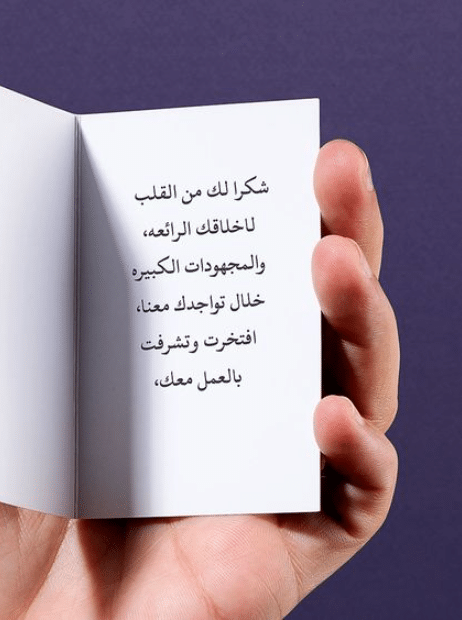 شكرا لك من القلب
لاخلاقك الرائعه،
والمجهودات الكبيره
خلال تواجدك معنا،
افتخرت وتشرفت
بالعمل معك،